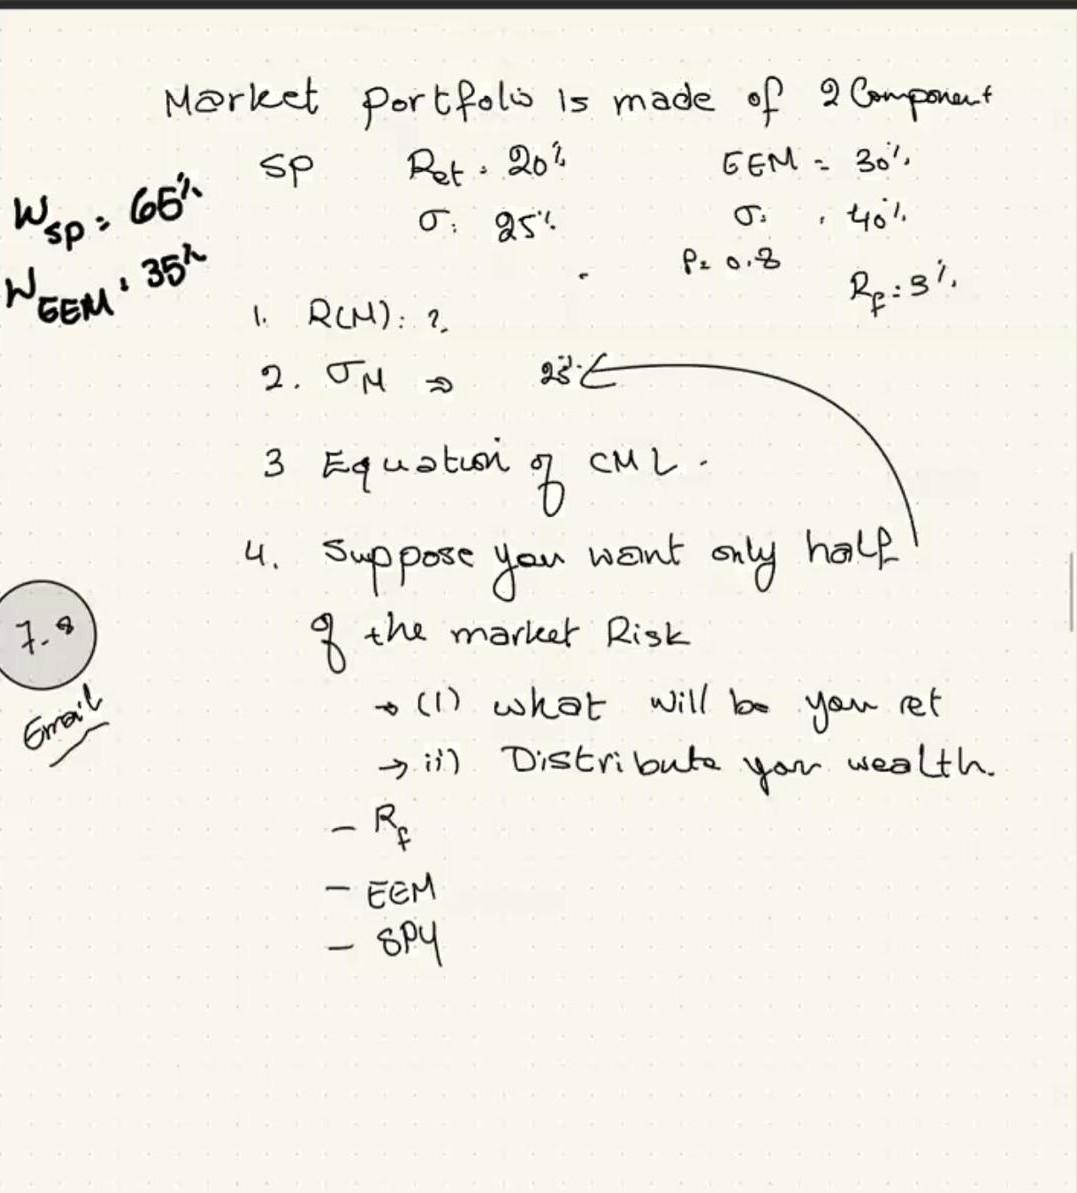 Market portfolio is made of 2 Component
SP Ret: 20% EEM = 30%
σ: 25% σ: 40%
W SP = 65%
W EEM: 35%
ρ= 0.8
Rf = 3%
1. R(M): ?
2. σM ⇒
3 Equation of CML.
4. Suppose you want only half
of the market Risk
→ (i) what will be you ret
→ ii) Distribute your wealth.
7.8
Email
– Rf
– EEM
– SPY